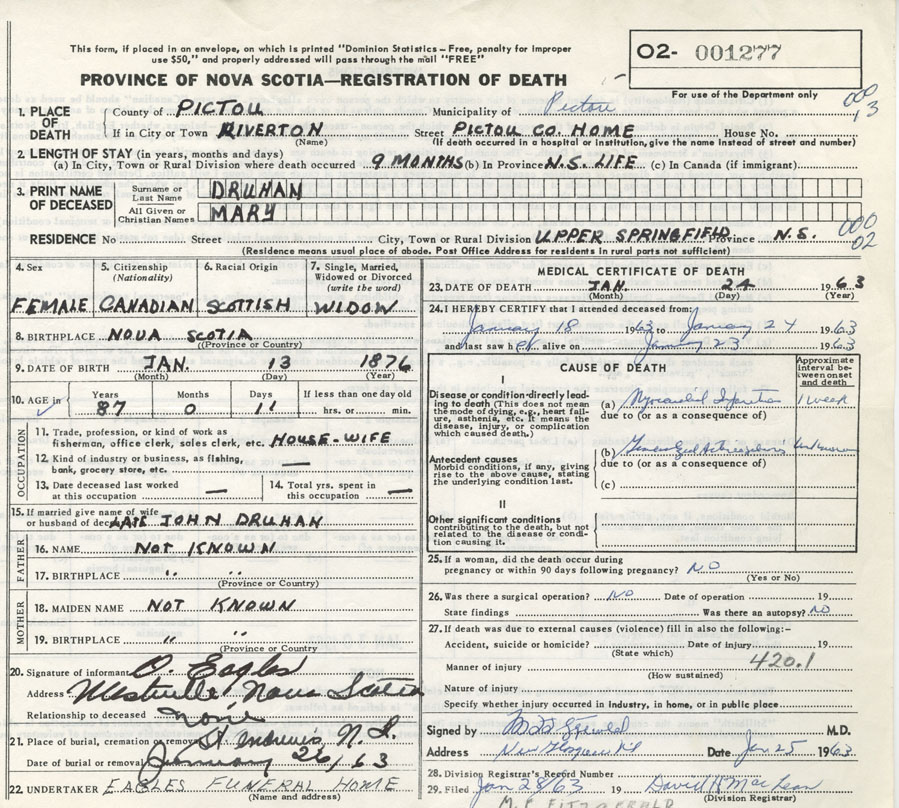 This form, if placed in an envelope, on which is printed "Dominion Statistics – Free, penalty for improper
use $50," and properly addressed will pass through the mail "FREE"
PROVINCE OF NOVA SCOTIA—REGISTRATION OF DEATH
02- 001277
For use of the Department only
000
13
1. PLACE OF DEATH County of PICTOU Municipality of Pictou
If in City or Town RIVERTON Street PICTOU CO. HOME House No.
(Name) (If death occurred in a hospital or institution, give the name instead of street and number)
2. LENGTH OF STAY (in years, months and days)
(a) In City, Town or Rural Division where death occurred 9 MONTHS (b) In Province N.S. LIFE (c) In Canada (if immigrant)
3. PRINT NAME OF DECEASED Surname or Last Name DRUHAN
All Given or Christian Names MARY
000
02
RESIDENCE No Street City, Town or Rural Division UPPER SPRINGFIELD Province N.S.
(Residence means usual place of abode. Post Office Address for residents in rural parts not sufficient)
4. Sex 5. Citizenship (Nationality) 6. Racial Origin 7. Single, Married, Widowed or Divorced (write the word)
FEMALE CANADIAN SCOTTISH WIDOW
8. BIRTHPLACE NOVA SCOTIA
(Province or Country)
9. DATE OF BIRTH JAN. 13 1876
(Month) (Day) (Year)
10. AGE in Years Months Days If less than one day old
87 0 11 hrs. or min.
OCCUPATION
11. Trade, profession, or kind of work as
fisherman, office clerk, sales clerk, etc. HOUSE-WIFE
12. Kind of industry or business, as fishing,
bank, grocery store, etc. —
13. Date deceased last worked at this occupation — 14. Total yrs. spent in this occupation —
15. If married give name of wife
or husband of deceased LATE JOHN DRUHAN
FATHER
16. NAME NOT KNOWN
17. BIRTHPLACE " "
(Province or Country)
MOTHER
18. MAIDEN NAME NOT KNOWN
19. BIRTHPLACE " "
(Province or Country)
20. Signature of informant O. Eagles
Address Westville Nova Scotia
Relationship to deceased none
21. Place of burial, cremation or removal St Andrews N.S.
Date of burial or removal January 26/63
22. UNDERTAKER EAGLES FUNERAL HOME
(Name and address)
MEDICAL CERTIFICATE OF DEATH
23. DATE OF DEATH JAN. 24 1963
(Month) (Day) (Year)
24. I HEREBY CERTIFY that I attended deceased from:
January 18 1963 to January 24 1963
and last saw her alive on January 23 1963
CAUSE OF DEATH
Approximate interval between onset and death
I
Disease or condition directly leading to death (This does not mean the mode of dying, e.g., heart failure, asthenia, etc. It means the disease, injury, or complication which caused death.)
(a) Myocardial Infarction 1 week
due to (or as a consequence of)
Antecedent causes
Morbid conditions, if any, giving rise to the above cause, stating the underlying condition last.
(b) Generalized Arteriosclerosis unknown
due to (or as a consequence of)
(c)
II
Other significant conditions
contributing to the death, but not related to the disease or condition causing it.
25. If a woman, did the death occur during
pregnancy or within 90 days following pregnancy? NO
(Yes or No)
26. Was there a surgical operation? NO Date of operation 19
State findings Was there an autopsy? NO
27. If death was due to external causes (violence) fill in also the following:–
Accident, suicide or homicide? Date of injury 19
(State which)
Manner of injury 420.1
(How sustained)
Nature of injury
Specify whether injury occurred in Industry, in home, or in public place
Signed by M.D.
Address New Glasgow NS Date Jan 25 1963
28. Division Registrar's Record Number
29. Filed Jan 28/63 19 David H MacLean
(Division Registrar)
M. P. FITZGERALD